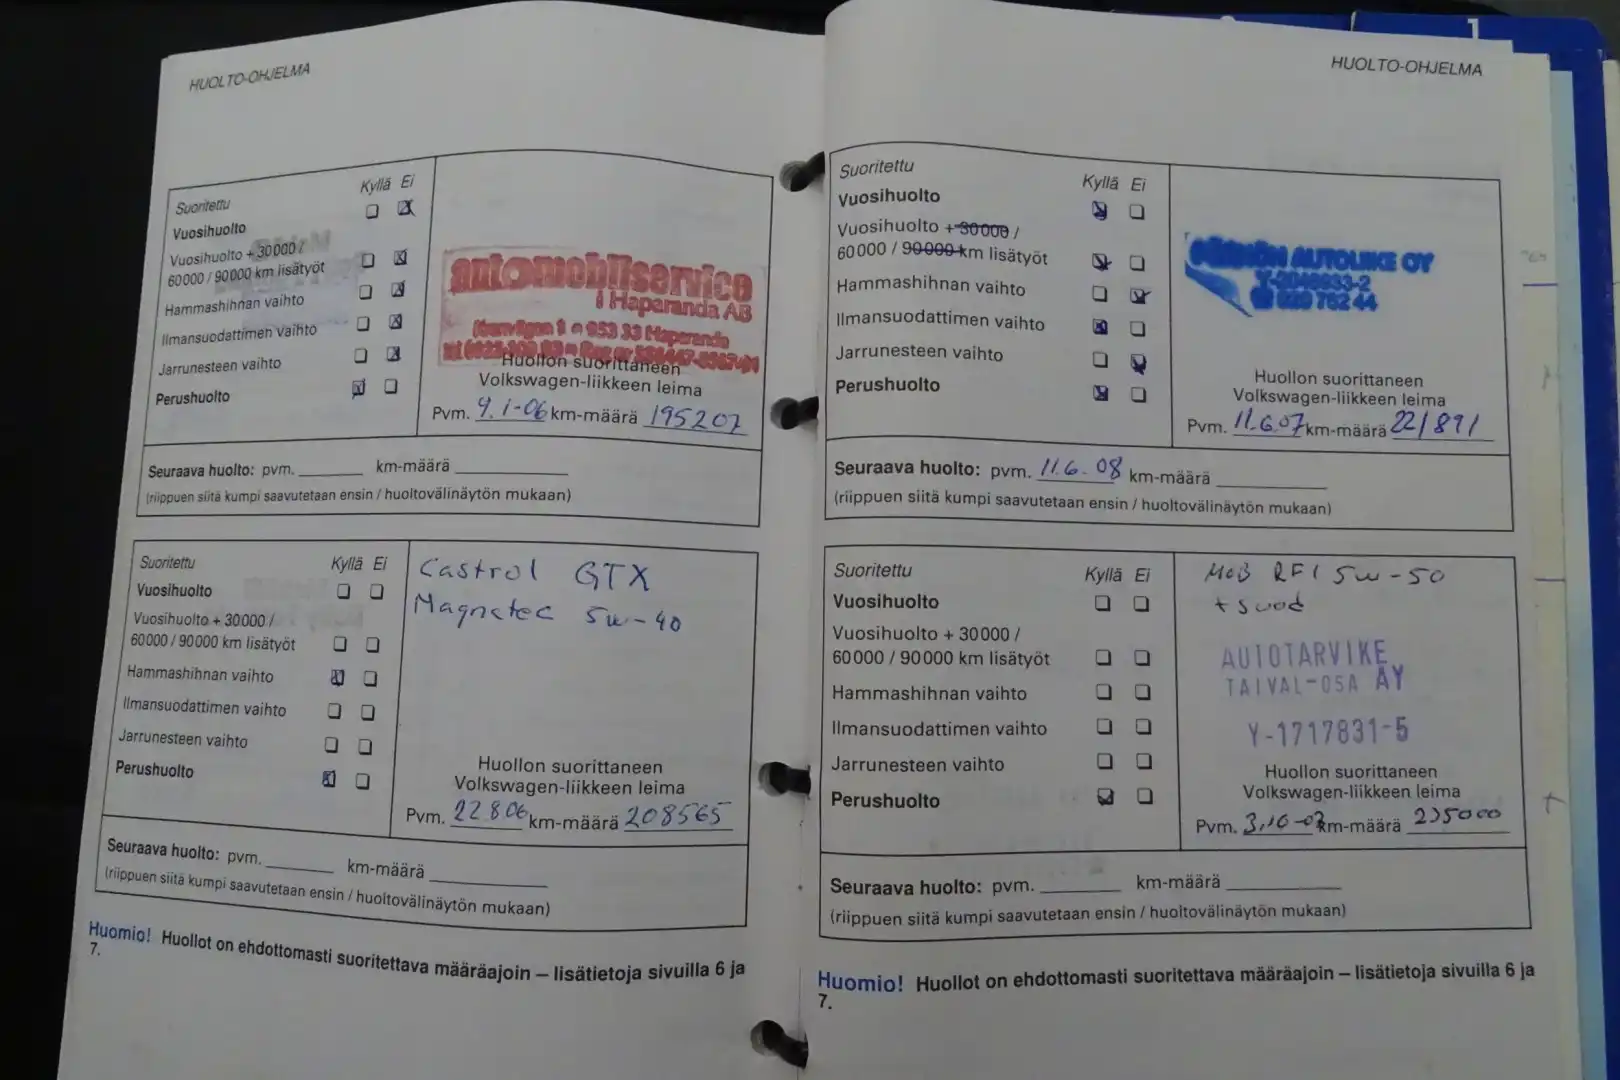 HUOLTO-OHJELMA
Suoritettu Kyllä Ei
Vuosihuolto
Vuosihuolto + 30000 /
60000 / 90000 km lisätyöt
Hammashihnan vaihto
Ilmansuodattimen vaihto
Jarrunesteen vaihto
Perushuolto
automobilservice
i Haparanda AB
953 33 Haparanda
Huollon suorittaneen
Volkswagen-liikkeen leima
Pvm. 9.1-06 km-määrä 195207
Seuraava huolto: pvm. km-määrä
(riippuen siitä kumpi saavutetaan ensin / huoltovälinäytön mukaan)
Suoritettu Kyllä Ei
Vuosihuolto
Vuosihuolto + 30000 /
60000 / 90000 km lisätyöt
Hammashihnan vaihto
Ilmansuodattimen vaihto
Jarrunesteen vaihto
Perushuolto
Castrol GTX
Magnatec 5w-40
Huollon suorittaneen
Volkswagen-liikkeen leima
Pvm. 22.8.06 km-määrä 208565
Seuraava huolto: pvm. km-määrä
(riippuen siitä kumpi saavutetaan ensin / huoltovälinäytön mukaan)
Huomio! Huollot on ehdottomasti suoritettava määräajoin – lisätietoja sivuilla 6 ja
7.
1
HUOLTO-OHJELMA
Suoritettu Kyllä Ei
Vuosihuolto
Vuosihuolto + 30000 /
60000 / 90000 km lisätyöt
Hammashihnan vaihto
Ilmansuodattimen vaihto
Jarrunesteen vaihto
Perushuolto
AUTOLIIKE OY
020 762 44
Huollon suorittaneen
Volkswagen-liikkeen leima
Pvm. 11.6.07 km-määrä 221891
Seuraava huolto: pvm. 11.6.08 km-määrä
(riippuen siitä kumpi saavutetaan ensin / huoltovälinäytön mukaan)
Suoritettu Kyllä Ei
Vuosihuolto
Vuosihuolto + 30000 /
60000 / 90000 km lisätyöt
Hammashihnan vaihto
Ilmansuodattimen vaihto
Jarrunesteen vaihto
Perushuolto
5w-50
+ suod
AUTOTARVIKE
TAIVAL-OSA AY
Y-1717831-5
Huollon suorittaneen
Volkswagen-liikkeen leima
Pvm. 3.10-07 km-määrä 235000
Seuraava huolto: pvm. km-määrä
(riippuen siitä kumpi saavutetaan ensin / huoltovälinäytön mukaan)
Huomio! Huollot on ehdottomasti suoritettava määräajoin – lisätietoja sivuilla 6 ja
7.